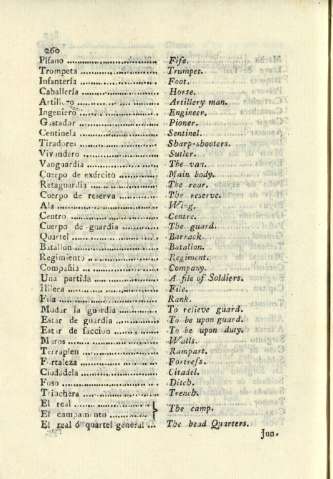 260
Pifano ........ Fife.
Trompeta ........ Trumpet.
Infantería ........ Foot.
Caballería ........ Horse.
Artillero ........ Artillery man.
Ingeniero ........ Engineer.
Gastador ........ Pioner.
Centinela ........ Sentinel.
Tiradores ........ Sharp-shooters.
Vivandero ........ Sutler.
Vanguardia ........ The van.
Cuerpo de exército ........ Main body.
Retaguardia ........ The rear.
Cuerpo de reserva ........ The reserve.
Ala ........ Wing.
Centro ........ Centre.
Cuerpo de guardia ........ The guard.
Quartel ........ Barrack.
Batallon ........ Batalion.
Regimiento ........ Regiment.
Compañia ........ Company.
Una partida ........ A file of Soldiers.
Hilera ........ File.
Fila ........ Rank.
Mudar la guardia ........ To relieve guard.
Estar de guardia ........ To be upon guard.
Estar de faccion ........ To be upon duty.
Muros ........ Walls.
Terraplen ........ Rampart.
Fortaleza ........ Fortress.
Ciudadela ........ Citadel.
Foso ........ Ditch.
Trinchera ........ Trench.
El real ........
El campamento ........ } The camp.
El real ó quartel general ... The head Quarters.
Jun-